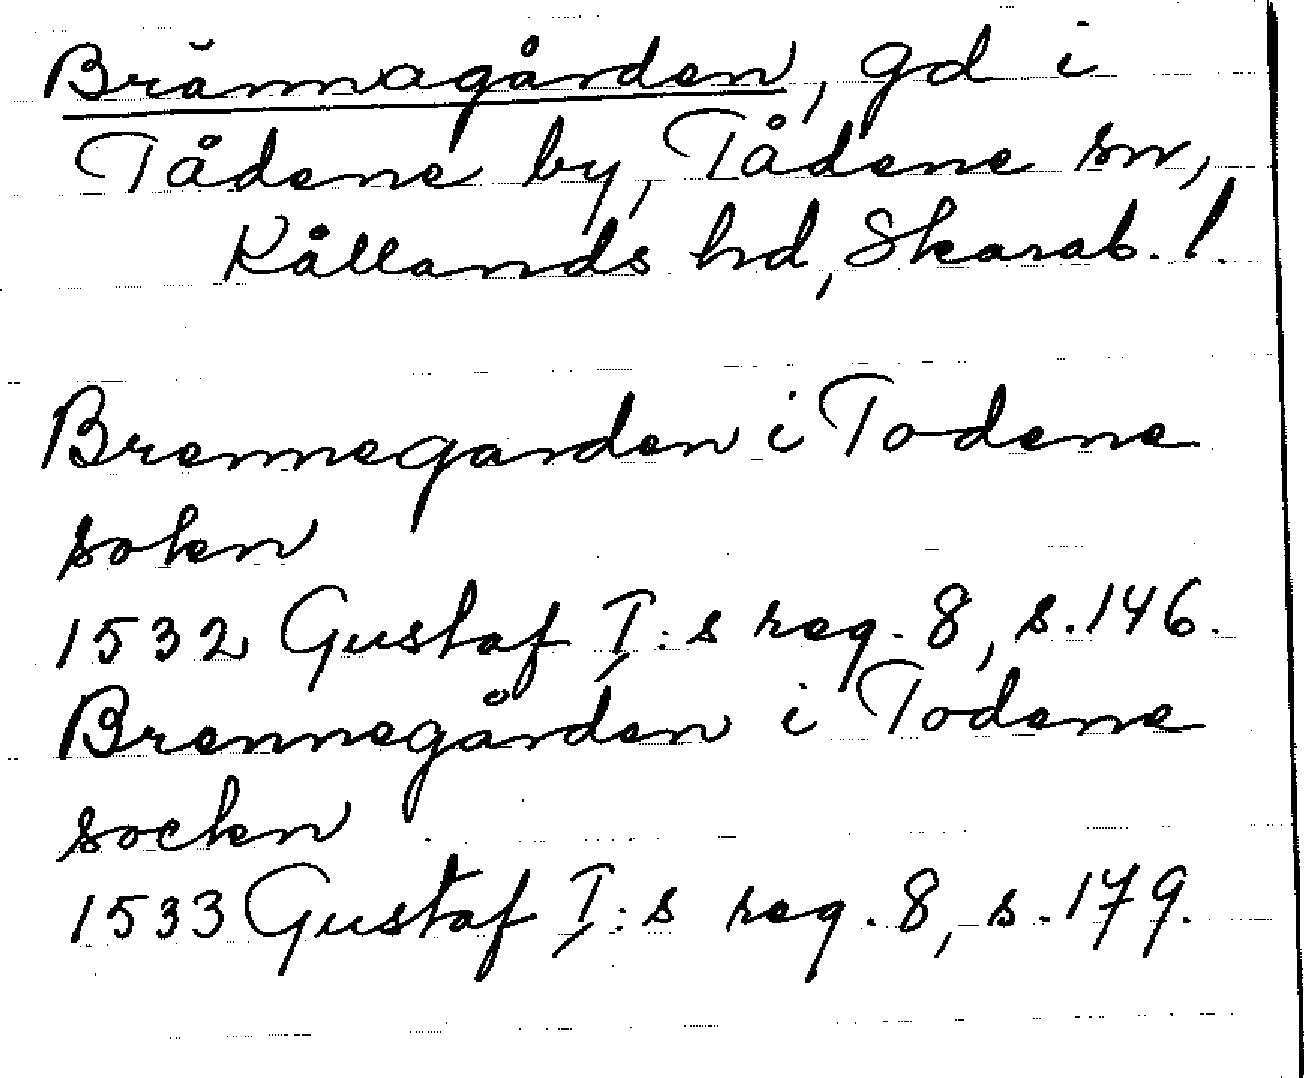 Brännagården, gd i
Tådene by, Tådene sn,
Kållands hd, Skarab. l.
Brennegarden i Todene
sokn
1532 Gustaf I:s reg. 8, s. 146.
Brennegården i Todene
sockn
1533 Gustaf I:s reg. 8, s. 179.